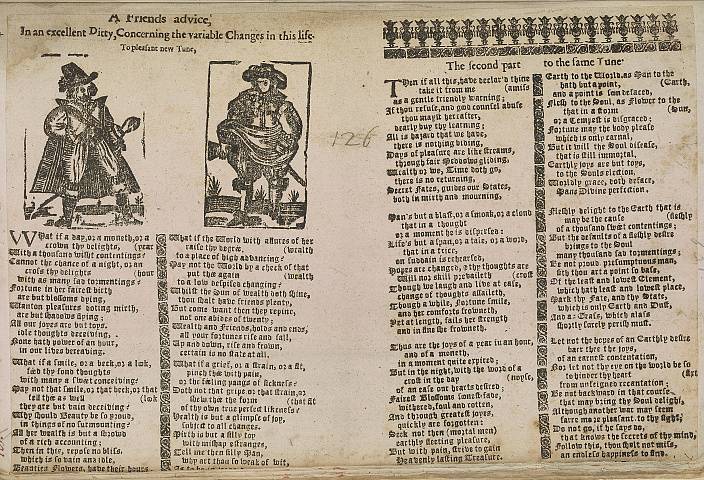 A Friends advice,
In an excellent Ditty, Concerning the variable Changes in this life.
To pleasant new Tune,
WHat if a day, or a moneth, or a
crown thy delights, (year
With a thousand wisht contentings?
Cannot the chance of a night, or an
cross thy delights (hour
with as many sad tormentings?
Fortune in her fairest birth
are but blossoms dying,
Wanton pleasures doting mirth,
are but shadows flying
All our joyes are but toys.
idle thoughts deceiving,
None hath power of an hour,
in our lives bereaving.
What if a smile, or a beck, or a look,
feed thy fond thoughts
with many a sweet conceiving?
May not that smile, or that beck, or that
tell thee as well (look
they are but vain deceiving?
Why should Beauty be so proud,
in things of no surmounting?
All her wealth is but a shrowd
of a rich accounting:
Then in this, repose no bliss,
which is so vain and idle,
Beauties Flowers, have their hours
What if the World with allures of her
raise thy degree, (wealth
to a place of high advancing?
May not the World by a check of that
put thee again (wealth
to a low despised changing?
Whilst the Sun of wealth doth shine,
thou shalt have friends plenty,
But come want then they repine,
not one abides of twenty;
Wealth and Friends, holds and ends,
all your fortunes rise and fall,
Up and down, rise and frown,
certain is no state at all.
What if a grief, or a strain, or a fit,
pinch thee with pain,
or the feeling pangs of sickness?
Doth not that gripe or that strain, or
shew thee the form (that fit
of thy own true perfect likeness?
Health is but a glimpse of joy,
subject to all changes.
Mirth is but a silly toy
which mishap estranges,
Tell me then silly Man,
why art thou so weak of wit,
126
The second part to the same Tune.
THen if all this, have declar'd thine
take it from me (amiss
as a gentle friendly warning;
If thou refuse, and good counsel abuse
thou mayst hereafter,
dearly buy thy learning;
All is hazard that we have,
there is nothing biding,
Days of pleasure are like streams,
through fair Medows gliding,
Wealth or wo, Time doth go,
there is no returning,
Secret Fates, guides our States,
both in mirth and mourning,
Man's but a blast, or a smoak, or a cloud
that in a thought
or a moment he is dispersed:
Life's but a span, or a tale, or a word,
that in a trice,
on sodain is rehearsed,
Hopes are changed, & thy thoughts are
Will nor skill prevaileth (crost
Though we laugh and live at ease,
change of thoughts assaileth,
Though a while, Fortune smile,
and her comforts crowneth,
Yet at length, fails her strength
and in fine she frowneth.
Thus are the joys of a year in an hour,
and of a moneth,
in a moment quite expired;
But in the night, with the word of a
crost in the day (noyse,
of an ease our hearts desired;
Fairest Blossoms soonest fade,
withered, foul and rotten,
And through greatest joyes,
quickly are forgotten:
Seek not then (mortal men)
earthly fleeting pleasure,
But with pain, strive to gain
Heavenly lasting Treasure.
Earth to the World, as Man to the
hath but a point, (Earth,
and a point is soon defaced,
Flesh to the Soul, as Flower to the
that in a storm (Sun,
or a Tempest is disgraced;
Fortune may the body please
which is only carnal,
But it will the Soul disease,
that is still immortal,
Earthly joys are but toys,
to the Souls election,
Worldly grace, doth deface,
Mans Divine perfection.
Fleshly delight to the Earth that is
may be the cause (fleshly
of a thousand sweet contentings;
But the defaults of a fleshly desire
brings to the Soul
many thousand sad tormentings;
Be not proud presumptuous man
sith thou art a point so base,
Of the least and lowest Element,
which hath least and lowest place,
Mark thy Fate, and thy State,
which is only Earth and Dust,
And as Grass, which alass
shortly surely perish must.
Let not the hopes of an Earthly desire
bar thee the joys,
of an earnest contentation,
Nor let not thy eye on the world be so
to hinder thy heart (fixt
from unfeigned recantation;
Be not backward in that course
that may bring thy Soul delight,
Although another way may seem
farre more pleasant to thy sight;
Do not go, if he says no,
that knows the secrets of thy mind,
Follow this, thou shalt not miss,
an endless happiness to find.